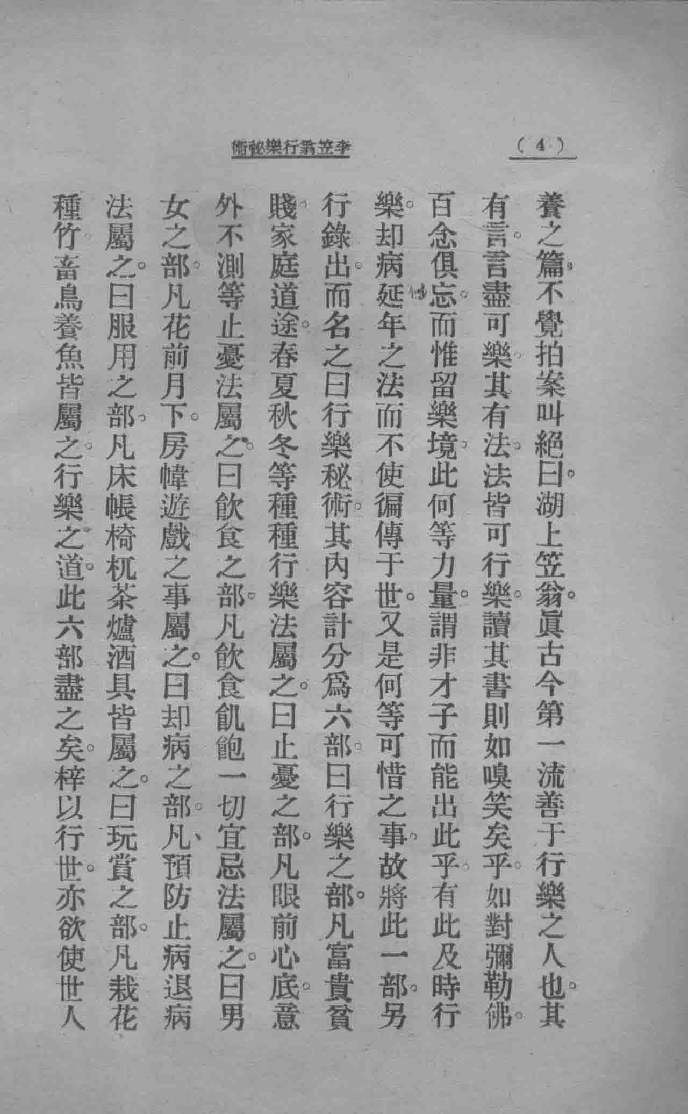 (4)
李笠翁行樂祕術
養之篇。不覺拍案叫絕曰。湖上笠翁。眞古今第一流善于行樂之人也。其
有言。言盡可樂。其有法。法皆可行樂。讀其書則如嗅笑矣乎。如對彌勒佛。
百念俱忘。而惟留樂境。此何等力量。謂非才子而能出此乎。有此及時行
樂。却病延年之法。而不使徧傳于世。又是何等可惜之事。故將此一部。另
行錄出。而名之曰行樂秘術。其內容計分爲六部。曰行樂之部。凡富貴貧
賤。家庭道途。春夏秋冬等種種行樂法屬之。曰止憂之部。凡眼前心底。意
外不測等止憂法屬之。曰飲食之部。凡飲食飢飽一切宜忌法屬之。曰男
女之部。凡花前月下。房幃遊戲之事屬之。曰却病之部。凡、預防止病退病
法屬之。曰服用之部。凡床帳椅杌茶爐酒具皆屬之。曰玩賞之部。凡栽花
種竹。畜鳥養魚皆屬之。行樂之道。此六部盡之矣。梓以行世。亦欲使世人